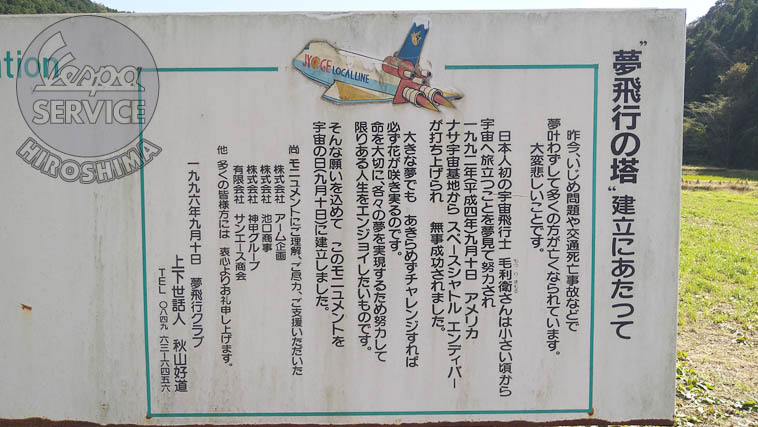 "夢飛行の塔"建立にあたって
昨今、いじめ問題や交通死亡事故などで
夢叶わずして多くの方が亡くなられています。
大変悲しいことです。
日本人初の宇宙飛行士 毛利衛さんは小さい頃から
宇宙へ旅立つことを夢見て努力され
一九九二年(平成四年)九月十日 アメリカ
ナサ宇宙基地から スペースシャトル エンディバー
が打ち上げられ 無事成功されました。
大きな夢でも あきらめずチャレンジすれば
必ず花が咲き実るのです。
命を大切に、各々の夢を実現するため努力して
限りある人生をエンジョイしたいものです。
そんな願いを込めて このモニュメントを
宇宙の日(九月十日)に建立しました。
尚 モニュメントにご理解、ご尽力、ご支援いただいた
株式会社 アーム企画
株式会社 池口商事
株式会社 神甲グループ
有限会社 サンエース商会
他 多くの皆様方には 衷心よりお礼申し上げます。
一九九六年九月十日 夢飛行クラブ
上下世話人 秋山好道
TEL 〇八四九 六二-六四五六
JYOGE LOCAL LINE
ation
Vespa
SERVICE
HIROSHIMA